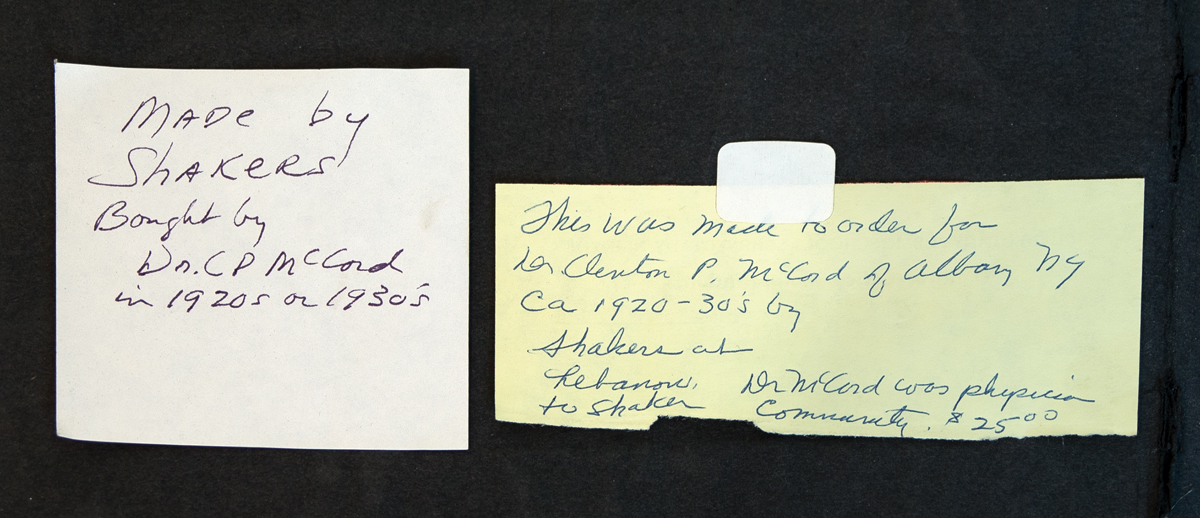 MADe by
ShAKeRS
Bought by
Dr. C P McCord
in 1920s or 1930's
This was made to order for
Dr. Clenton P. McCord of Albany NY
Ca 1920-30's by
Shakers at
Lebanon. Dr McCord was physician
to Shaker Community. $2500